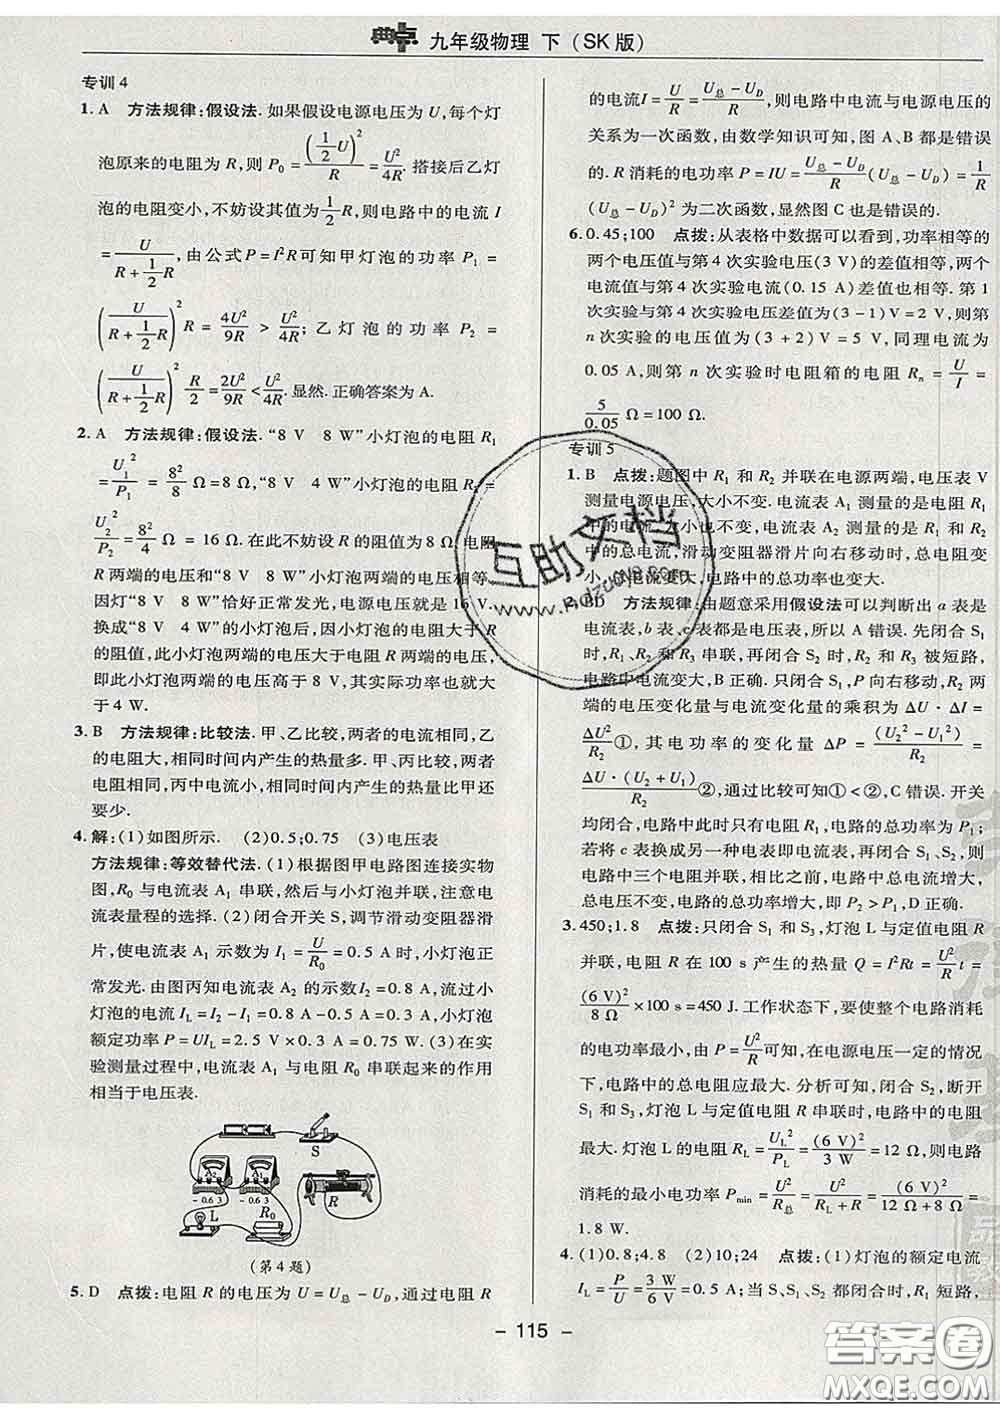 典点 九年级物理 下(SK版)
专训4
1. A 方法规律:假设法. 如果假设电源电压为 U,每个灯
泡原来的电阻为 R,则 P₀ = (½U)²/R = U²/4R. 搭接后乙灯
泡的电阻变小,不妨设其值为 ½R,则电路中的电流 I
= U/(R + ½R),由公式 P = I²R 可知甲灯泡的功率 P₁ =
(U/(R + ½R))² R = 4U²/9R > U²/4R;乙灯泡的功率 P₂ =
(U/(R + ½R))² R/2 = 2U²/9R < U²/4R. 显然. 正确答案为 A.
2. A 方法规律:假设法. “8 V 8 W”小灯泡的电阻 R₁
= U₁²/P₁ = 8²/8 Ω = 8 Ω,“8 V 4 W”小灯泡的电阻 R₂ =
U₂²/P₂ = 8²/4 Ω = 16 Ω. 在此不妨设 R 的阻值为 8 Ω,电阻
R 两端的电压和“8 V 8 W”小灯泡两端的电压相等.
因灯“8 V 8 W”恰好正常发光,则电源电压就是 16 V.
换成“8 V 4 W”的小灯泡后,因小灯泡的电阻大于 R
的阻值,此小灯泡两端的电压大于电阻 R 两端的电压,
即此小灯泡两端的电压高于 8 V,其实际功率也就大
于 4 W.
3. B 方法规律:比较法. 甲、乙比较,两者的电流相同,乙
的电阻大,相同时间内产生的热量多. 甲、丙比较,两者
电阻相同,丙中电流小,相同时间内产生的热量比甲还
要少.
4. 解:(1)如图所示. (2)0.5;0.75 (3)电压表
方法规律:等效替代法. (1)根据图甲电路图连接实物
图,R₀ 与电流表 A₁ 串联,然后与小灯泡并联,注意电
流表量程的选择. (2)闭合开关 S,调节滑动变阻器滑
片,使电流表 A₁ 示数为 I₁ = U/R₀ = 0.5 A 时,小灯泡正
常发光. 由图丙知电流表 A₂ 的示数 I₂ = 0.8 A,流过小
灯泡的电流 I_L = I₂ - I₁ = 0.8 A - 0.5 A = 0.3 A,小灯泡
额定功率 P = UI_L = 2.5 V × 0.3 A = 0.75 W. (3)在实
验测量过程中,电流表 A₁ 与电阻 R₀ 串联起来的作用
相当于电压表.
S
A₂ A₁
- 0.6 3 - 0.6 3 R
L R₀
(第 4 题)
5. D 点拨:电阻 R 的电压为 U = U总 - U_D,通过电阻 R
的电流 I = U/R = (U总 - U_D)/R,则电路中电流与电源电压的
关系为一次函数,由数学知识可知,图 A、B 都是错误
的. R 消耗的电功率 P = IU = (U总 - U_D)/R (U总 - U_D) = 1/R
(U总 - U_D)² 为二次函数,显然图 C 也是错误的.
6. 0.45;100 点拨:从表格中数据可以看到,功率相等的
两个电压值与第 4 次实验电压(3 V)的差值相等,两个
电流值与第 4 次实验电流(0.15 A)差值也相等. 第 1
次实验与第 4 次实验电压差值为(3 - 1) V = 2 V,则第
n 次实验的电压值为(3 + 2) V = 5 V,同理电流为
0.05 A,则第 n 次实验时电阻箱的电阻 Rₙ = U/I =
5/0.05 Ω = 100 Ω.
专训5
1. B 点拨:题图中 R₁ 和 R₂ 并联在电源两端,电压表 V
测量电源电压,大小不变. 电流表 A₁ 测量的是电阻 R₁
中的电流,大小也不变,电流表 A 测量的是 R₁ 和 R₂
中的总电流,滑动变阻器滑片向右移动时,总电阻变
小,总电流变大,电路中的总功率也变大.
BD 方法规律:由题意采用假设法可以判断出 a 表是
电流表,b 表、c 表都是电压表,所以 A 错误. 先闭合 S₁
时,R₁、R₂、R₃ 串联,再闭合 S₂ 时,R₁ 和 R₃ 被短路,
电路中电流变大,B 正确. 只闭合 S₁ 和再闭合 S₂,R₂ 两
端的电压变化量与电流变化量的乘积为 ΔU · ΔI =
ΔU²/R₂ ①,其电功率的变化量 ΔP = (U₂² - U₁²)/R₂ =
ΔU · (U₂ + U₁)/R₂ ②,通过比较可知① < ②,C 错误. 开关
均闭合,电路中此时只有电阻 R₂,电路的总功率为 P₁;
若将 c 表换成另一种电表即电流表,再闭合 S₁、S₂,则
电路中三个电阻并联,相比之前电路的总电流增大,
总电压不变,电路的总功率增大,即 P₂ > P₁,D 正确.
3. 450;1.8 点拨:只闭合 S₁ 和 S₃,灯泡 L 与定值电阻 R
并联,电阻 R 在 100 s 产生的热量 Q = I²Rt = U²/R t =
(6 V)²/8 Ω × 100 s = 450 J. 工作状态下,要使整个电路消耗
的电功率最小,由 P = U²/R 可知,在电源电压一定的情况
下,电路中的总电阻应最大. 分析可知,闭合 S₂,断开
S₁ 和 S₃,灯泡 L 与定值电阻 R 串联时,电路中的电阻
最大. 灯泡 L 的电阻 R_L = U_L²/P_L = (6 V)²/3 W = 12 Ω,则电路
消耗的最小电功率 Pmin = U²/R总 = U²/(R_L + R) = (6 V)²/(12 Ω + 8 Ω) =
1.8 W.
4. (1)0.8;4.8 (2)10;24 点拨:(1)灯泡的额定电流
I_L = P/U = 3 W/6 V = 0.5 A;当 S、S₁、S₂ 都闭合时,R₁ 短路,
- 115 -
互助文档
答案圈
MXQE.COM